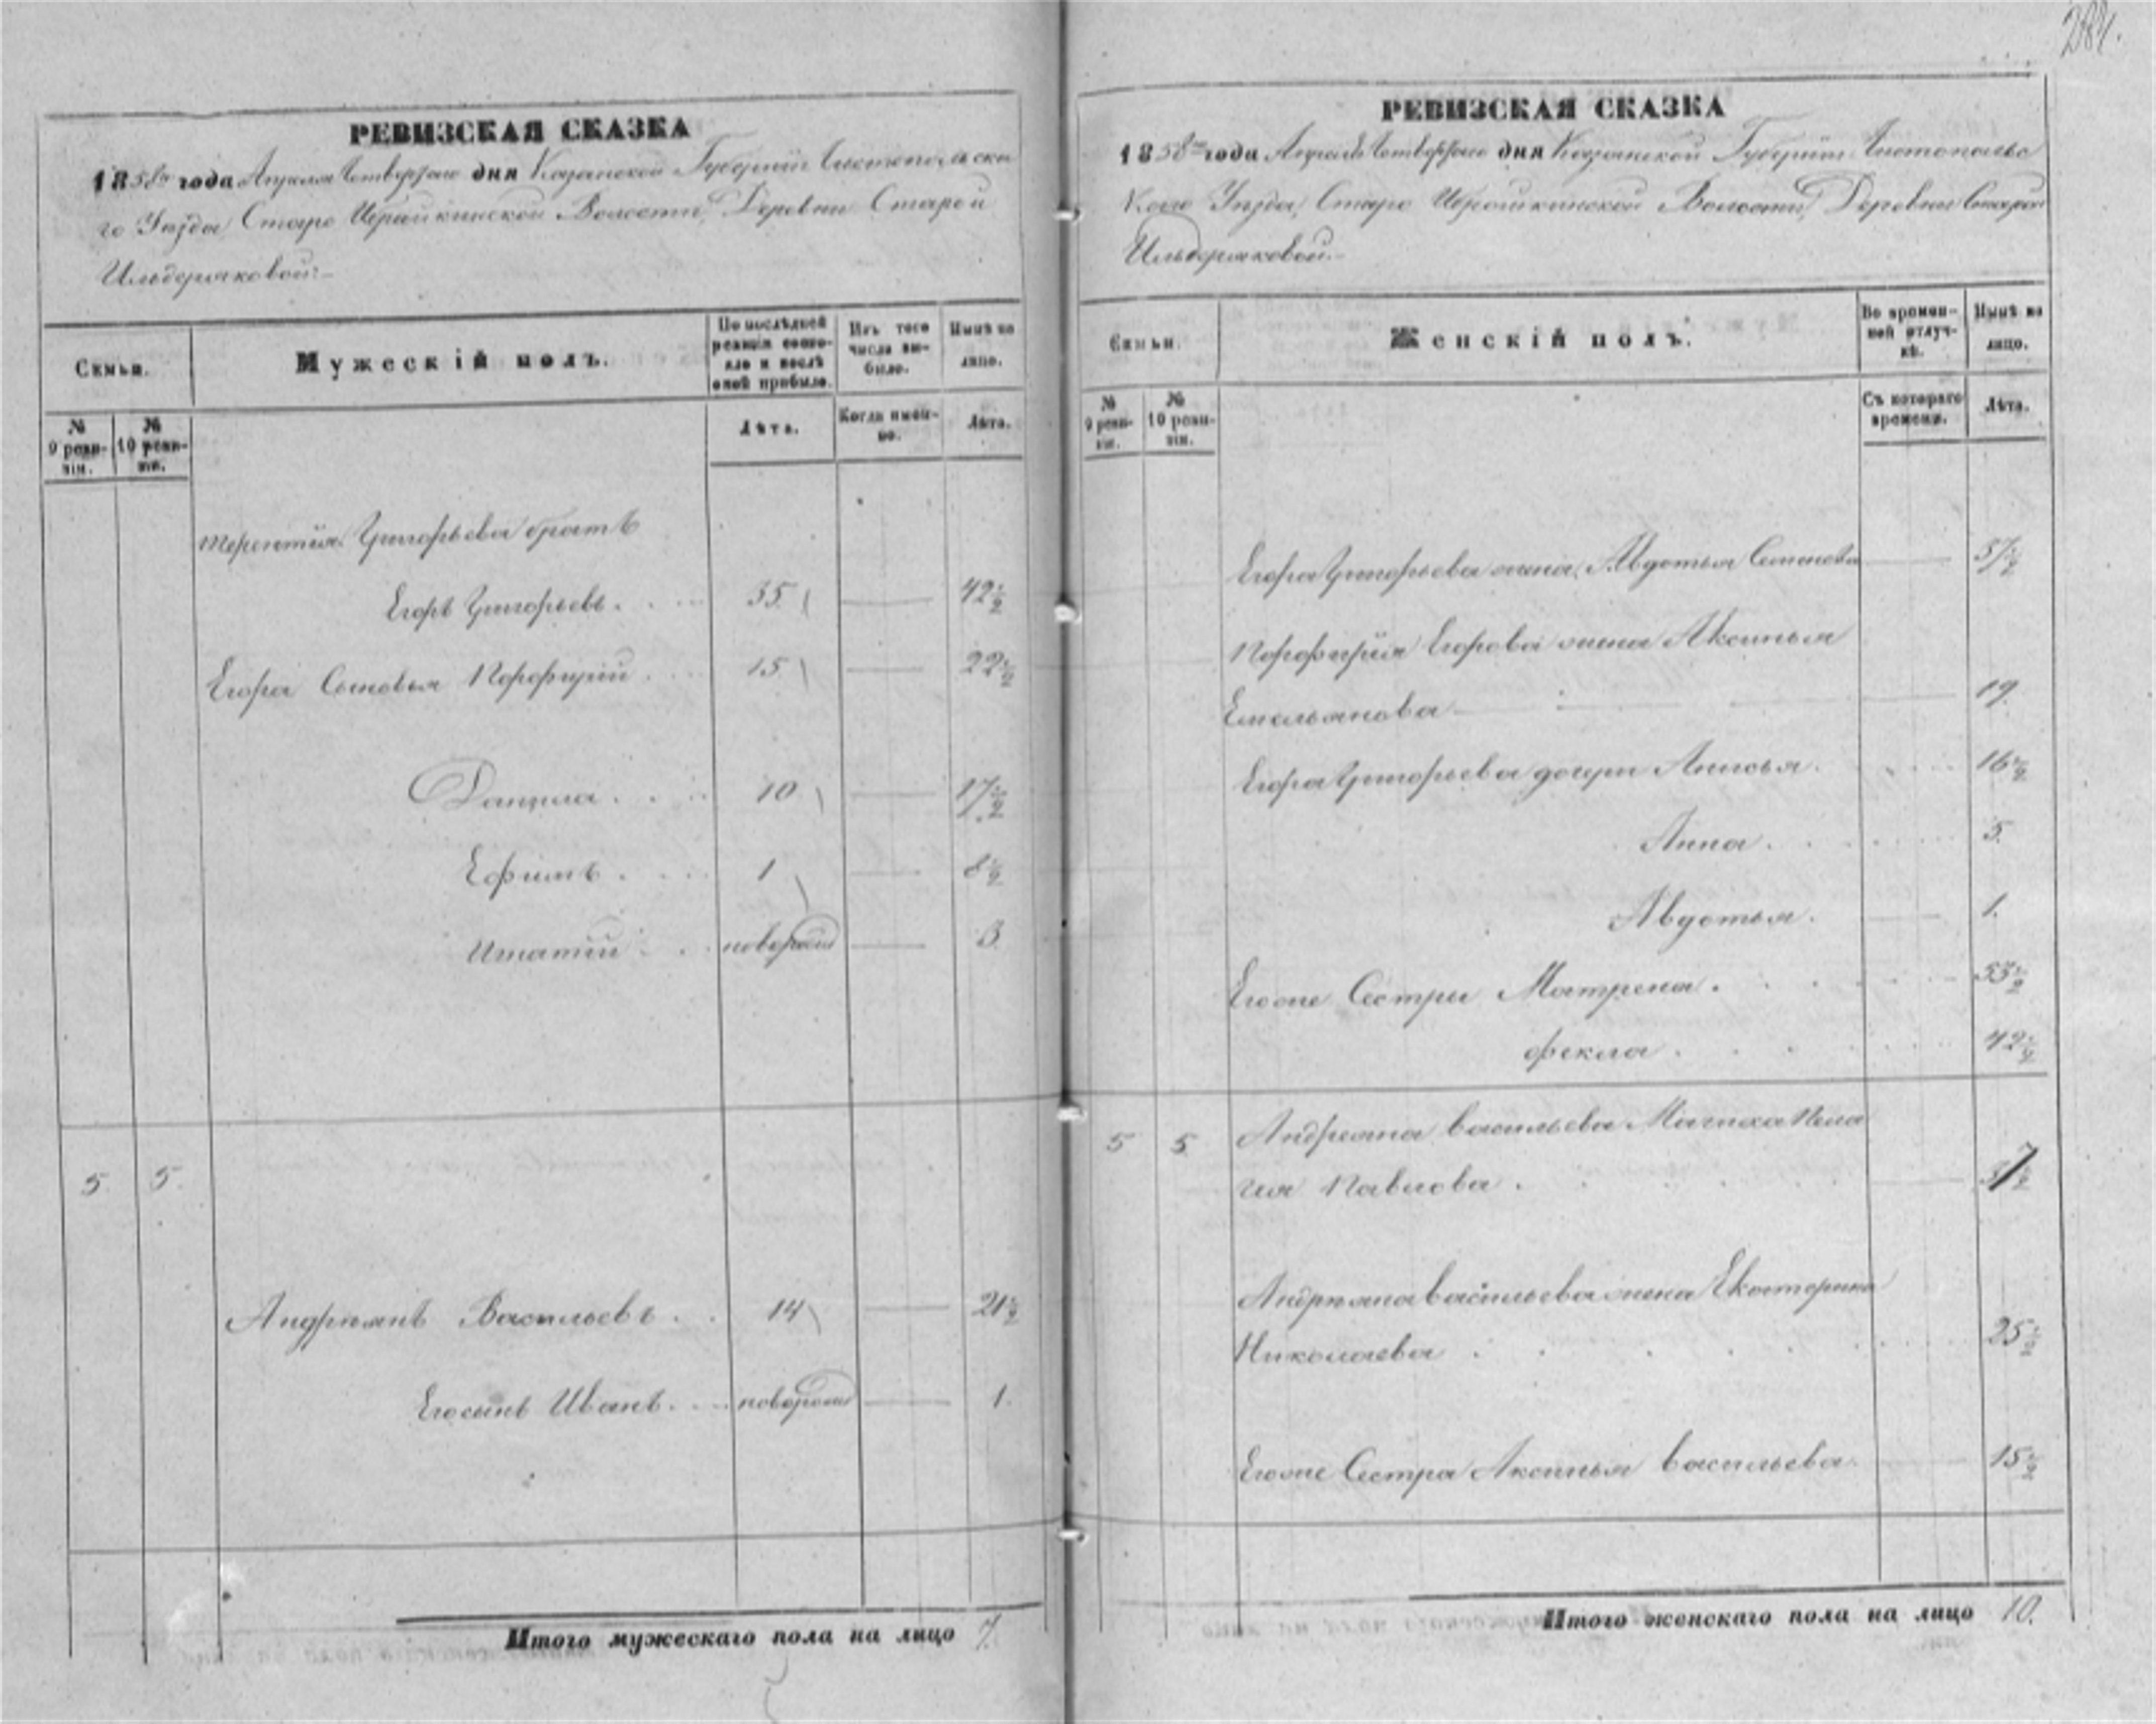 284.
РЕВИЗСКАЯ СКАЗКА
1858го года Апреля Четвертаго дня Казанской Губернiи Чистопольска
го Уезда Старо Ибрайкинской Волости, Деревни Старой
Ильдеряковой:-
Семьи.
Мужескiй полъ.
По послѣдней ревизiи состояло и послѣ оной прибыло.
Изъ того числа выбыло.
Нынѣ на лицо.
№ 9 ревизiи.
№ 10 ревизiи.
Лѣта.
Когда именно.
Лѣта.
Терентiя Григорьева братъ
Егоръ Григорьевъ. 35 42½
Егора Сыновья Порфирiй 15 22½
Данила 10 17½
Ефимъ 1 8½
новорожд 3.
5. 5.
Андреянъ Васильевъ 14 21½
Егосынъ Иванъ новорожд 1.
Итого мужескаго пола на лицо 7.
РЕВИЗСКАЯ СКАЗКА
1858го года Апреля Четвертаго дня Казанской Губернiи Чистопольс
каго Уезда, Старо Ибрайкинской Волости, Деревни Старой
Ильдеряковой.-
Семьи.
Женскiй полъ.
Во временной отлучкѣ.
Нынѣ на лицо.
№ 9 ревизiи.
№ 10 ревизiи.
Съ котораго времени.
Лѣта.
Егора Григорьева жена, Авдотья Семенова
Порфирiя Егорова жена Аксинья
Емельянова 19.
Егора Григорьева дочери Анисья. 16½
Анна. 5.
Авдотья. 1.
Егоже Сестры Матрена. 53½
Фекла. 42½
5 5 Андреяна Васильева Мачиха Пела
гия Павлова.
Андреяна Васильева жена Екатерина
Николаева 25½
Егоже Сестра Аксинья Васильева 15½
Итого женскаго пола на лицо 10.